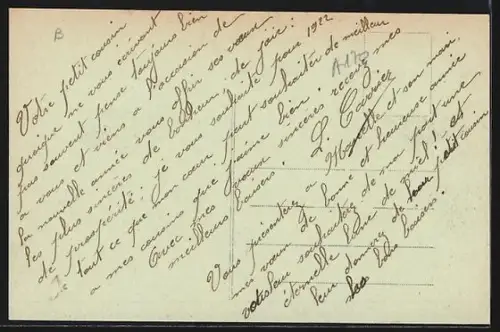 B
A170
Votre petit cousin
quoique ne vous écrivant
pas souvent pense toujours bien
a vous et viens a l'occasion de
la nouvelle année vous offrir ses vœux
les plus sincères de bonheur, de joie,
de prospérité: je vous souhaite pour 1922
tout ce que mon cœur peut souhaiter de meilleur
a mes cousins que j'aime bien. recevez mes
Avec mes vœux sincères
meilleurs baisers.
L. Carrier
Vous présenterez a Marcelle et son mari
mes vœux de bonne et heureuse année
souhaitez de ma part une
éternelle lune de miel! et
leur donnerez de leur petit cousin
bons baisers.